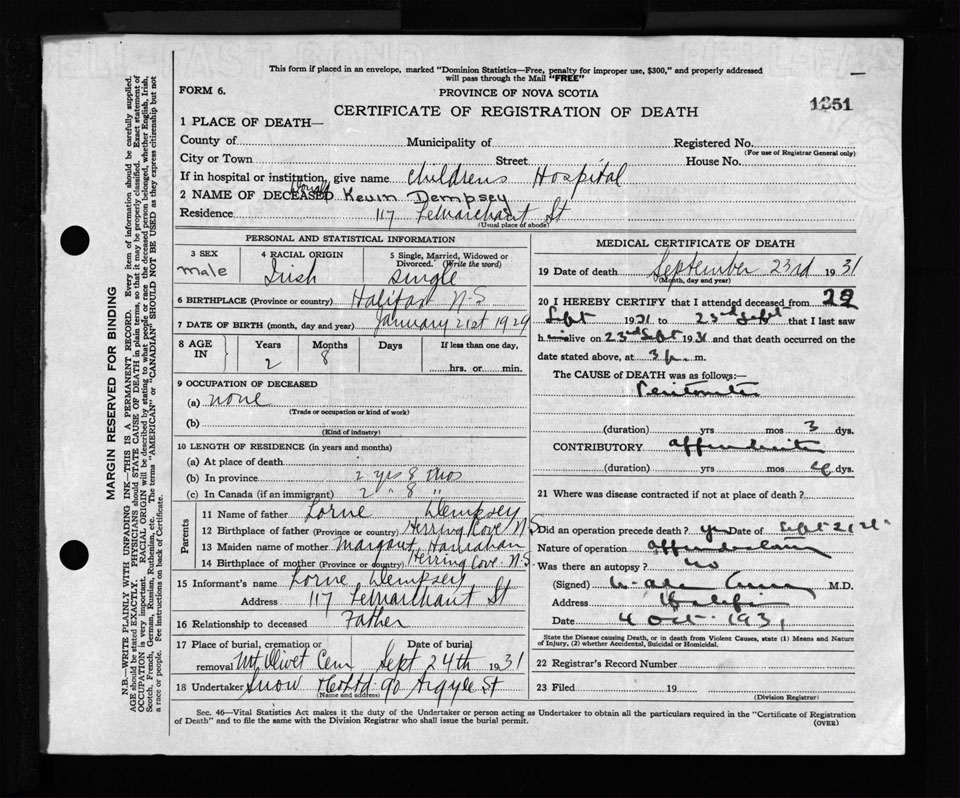 This form if placed in an envelope, marked "Dominion Statistics—Free, penalty for improper use, $300," and properly addressed
will pass through the Mail "FREE"
FORM 6.
PROVINCE OF NOVA SCOTIA
1251
CERTIFICATE OF REGISTRATION OF DEATH
1 PLACE OF DEATH—
County of Municipality of Registered No.
(For use of Registrar General only)
City or Town Street House No.
If in hospital or institution, give name Childrens Hospital
Donald
2 NAME OF DECEASED Kevin Dempsey
Residence 117 LeMarchant St
(Usual place of abode)
PERSONAL AND STATISTICAL INFORMATION
3 SEX 4 RACIAL ORIGIN 5 Single, Married, Widowed or
Divorced. (Write the word)
male Irish single
6 BIRTHPLACE (Province or country) Halifax N-S
7 DATE OF BIRTH (month, day and year) January 21st 1929
8 AGE IN Years Months Days If less than one day,
2 8
hrs. or min.
9 OCCUPATION OF DECEASED
(a) none
(Trade or occupation or kind of work)
(b)
(Kind of industry)
10 LENGTH OF RESIDENCE (in years and months)
(a) At place of death
(b) In province 2 yrs 8 mos
(c) In Canada (if an immigrant) 2 " 8 "
Parents
11 Name of father Lorne Dempsey
12 Birthplace of father (Province or country) Herring Cove N S
13 Maiden name of mother Margaret Hanrahan
14 Birthplace of mother (Province or country) Herring Cove N-S
15 Informant's name Lorne Dempsey
Address 117 LeMarchant St
16 Relationship to deceased Father
17 Place of burial, cremation or Date of burial
removal Mt Olivet Cem Sept 24th 1931
18 Undertaker Snow & Co Ltd 90 Argyle St
(Name and address)
MEDICAL CERTIFICATE OF DEATH
19 Date of death September 23rd 1931
(Month, day and year)
20 I HEREBY CERTIFY that I attended deceased from 22
Sept 1931 to 23rd Sept that I last saw
h alive on 23rd Sept 1931 and that death occurred on the
date stated above, at 3 p. m.
The CAUSE of DEATH was as follows:—
Peritonitis
(duration) yrs mos 3 dys.
CONTRIBUTORY appendicitis
(duration) yrs mos dys.
21 Where was disease contracted if not at place of death?
Did an operation precede death? yes Date of Sept 21
Nature of operation appendectomy
Was there an autopsy? no
(Signed) M.D.
Address Halifax
Date 4 Oct. 1931
State the Disease causing Death, or in death from Violent Causes, state (1) Means and Nature
of Injury, (2) whether Accidental, Suicidal or Homicidal.
22 Registrar's Record Number
23 Filed 19
(Division Registrar)
Sec. 46—Vital Statistics Act makes it the duty of the Undertaker or person acting as Undertaker to obtain all the particulars required in the "Certificate of Registration
of Death" and to file the same with the Division Registrar who shall issue the burial permit.
(OVER)
MARGIN RESERVED FOR BINDING
N.B.—WRITE PLAINLY WITH UNFADING INK—THIS IS A PERMANENT RECORD. Every item of information should be carefully supplied.
AGE should be stated EXACTLY. PHYSICIANS should STATE CAUSE OF DEATH in plain terms, so that it may be properly classified. Exact statement of
OCCUPATION is very important. RACIAL ORIGIN will be described by stating to what people or race the deceased person belonged, whether English, Irish,
Scotch, French, German, Russian, Ruthenian, etc. The terms "AMERICAN" or "CANADIAN" SHOULD NOT BE USED as they express citizenship but not
a race or people. See instructions on back of Certificate.